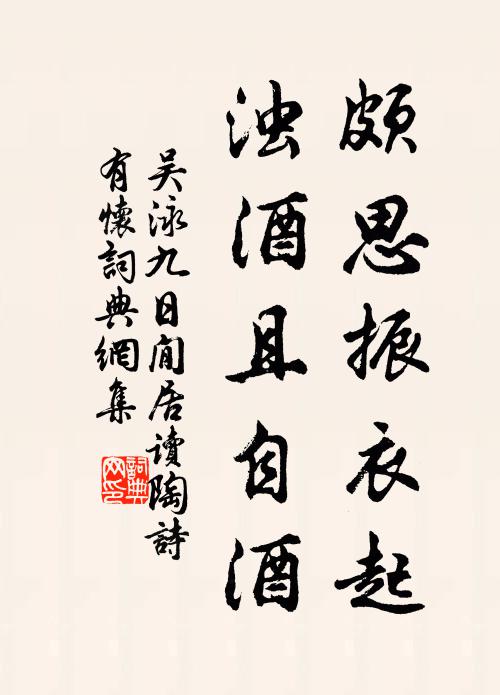 頗思振衣起
浊酒且自酒
吴泳九日閒居讀陶詩
有懷詞典網集
詞典
网印